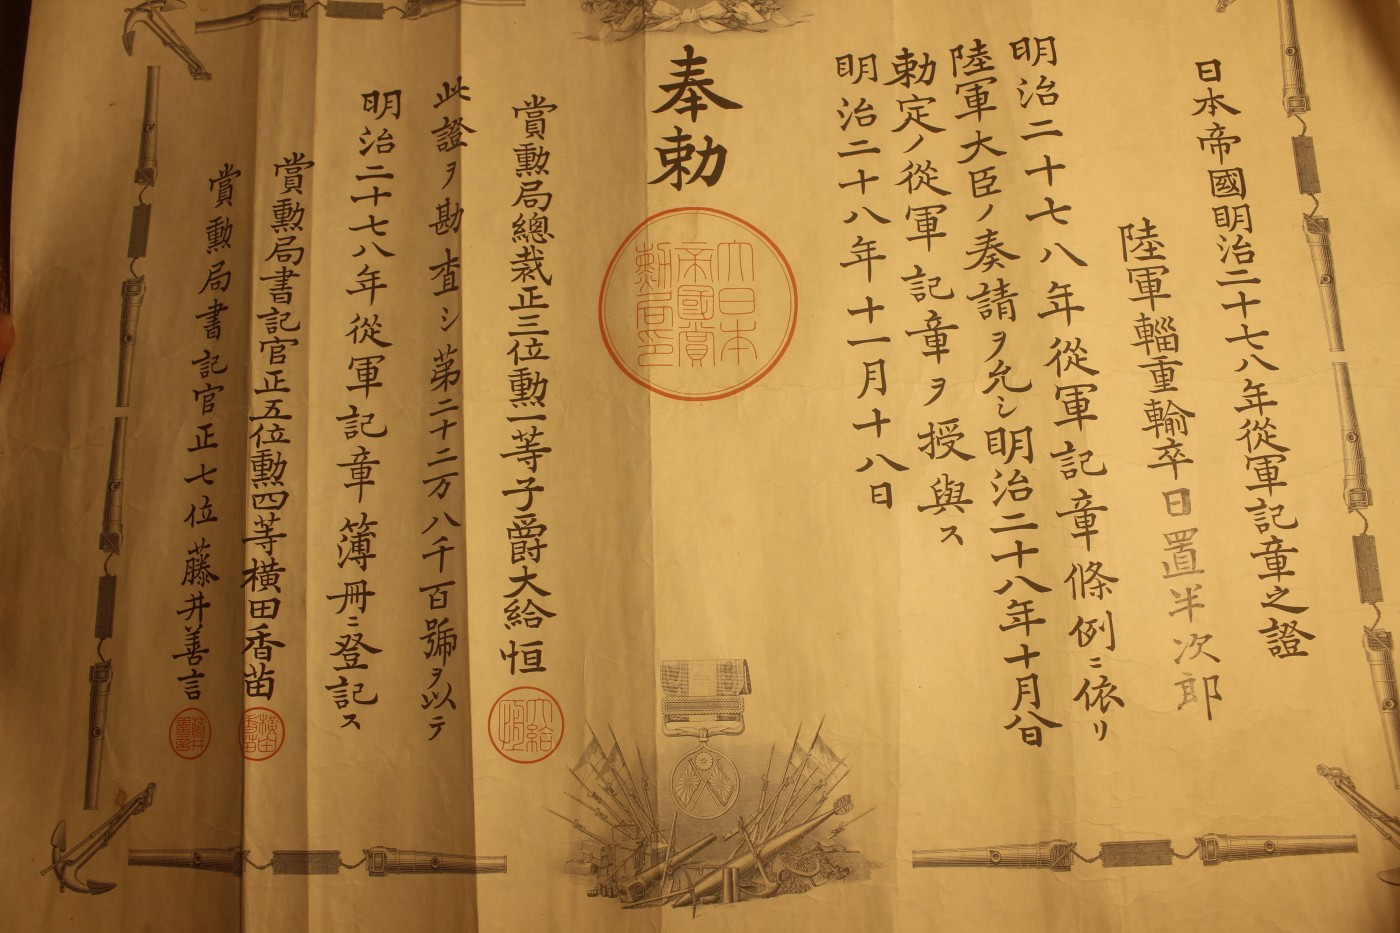 日本帝國明治二十七八年從軍記章之證
陸軍輜重輸卒日置半次郎
明治二十七八年從軍記章條例ニ依リ
陸軍大臣ノ奏請ヲ允シ明治二十八年十月八日
勅定ノ從軍記章ヲ授與ス
明治二十八年十一月十八日
奉勅
大日本
帝國賞
勳局印
賞勲局總裁正三位勲一等子爵大給恒
大給
恒
此證ヲ勘査シ第二十二万八千百號ヲ以テ
明治二十七八年從軍記章簿冊ニ登記ス
賞勲局書記官正五位勲四等横田香苗
横田
香苗
賞勲局書記官正七位藤井善言
藤井
善言